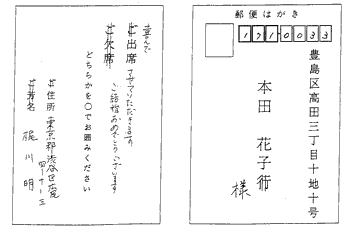 喜んで
出席させていただきます
ご結婚おめでとうございます
御欠席
どちらかを○でお囲みください
御住所 東京都渋谷区広尾
四-十-三
御芳名 梶川 明
郵便はがき
1710033
豊島区高田三丁目十地十号
本田 花子 様